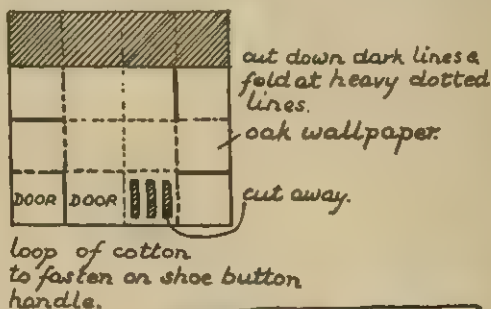 cut down dark lines &
fold at heavy dotted
lines.
oak wallpaper.
DOOR DOOR
cut away.
loop of cotton
to fasten on shoe button
handle.